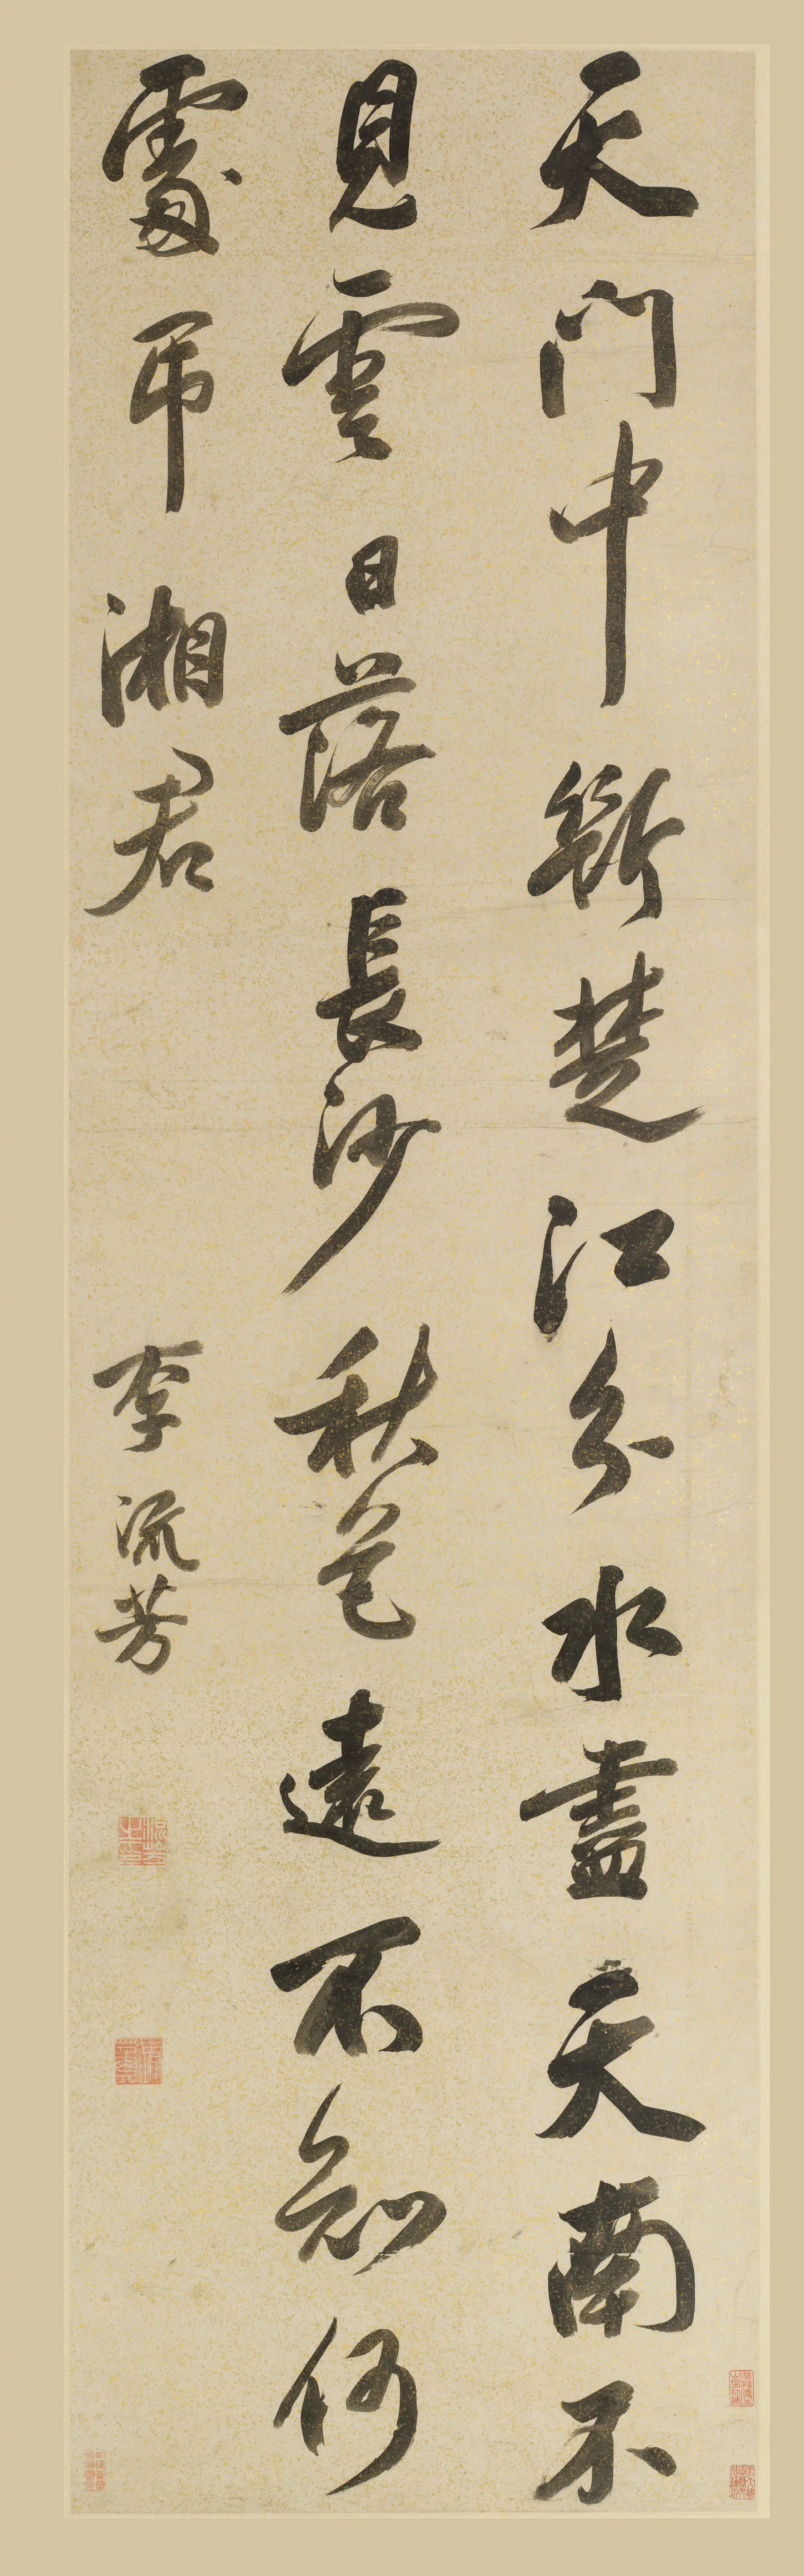 天門中斷楚江分水盡天南不
見雲日落長沙秋色遠不知何
處弔湘君
李流芳